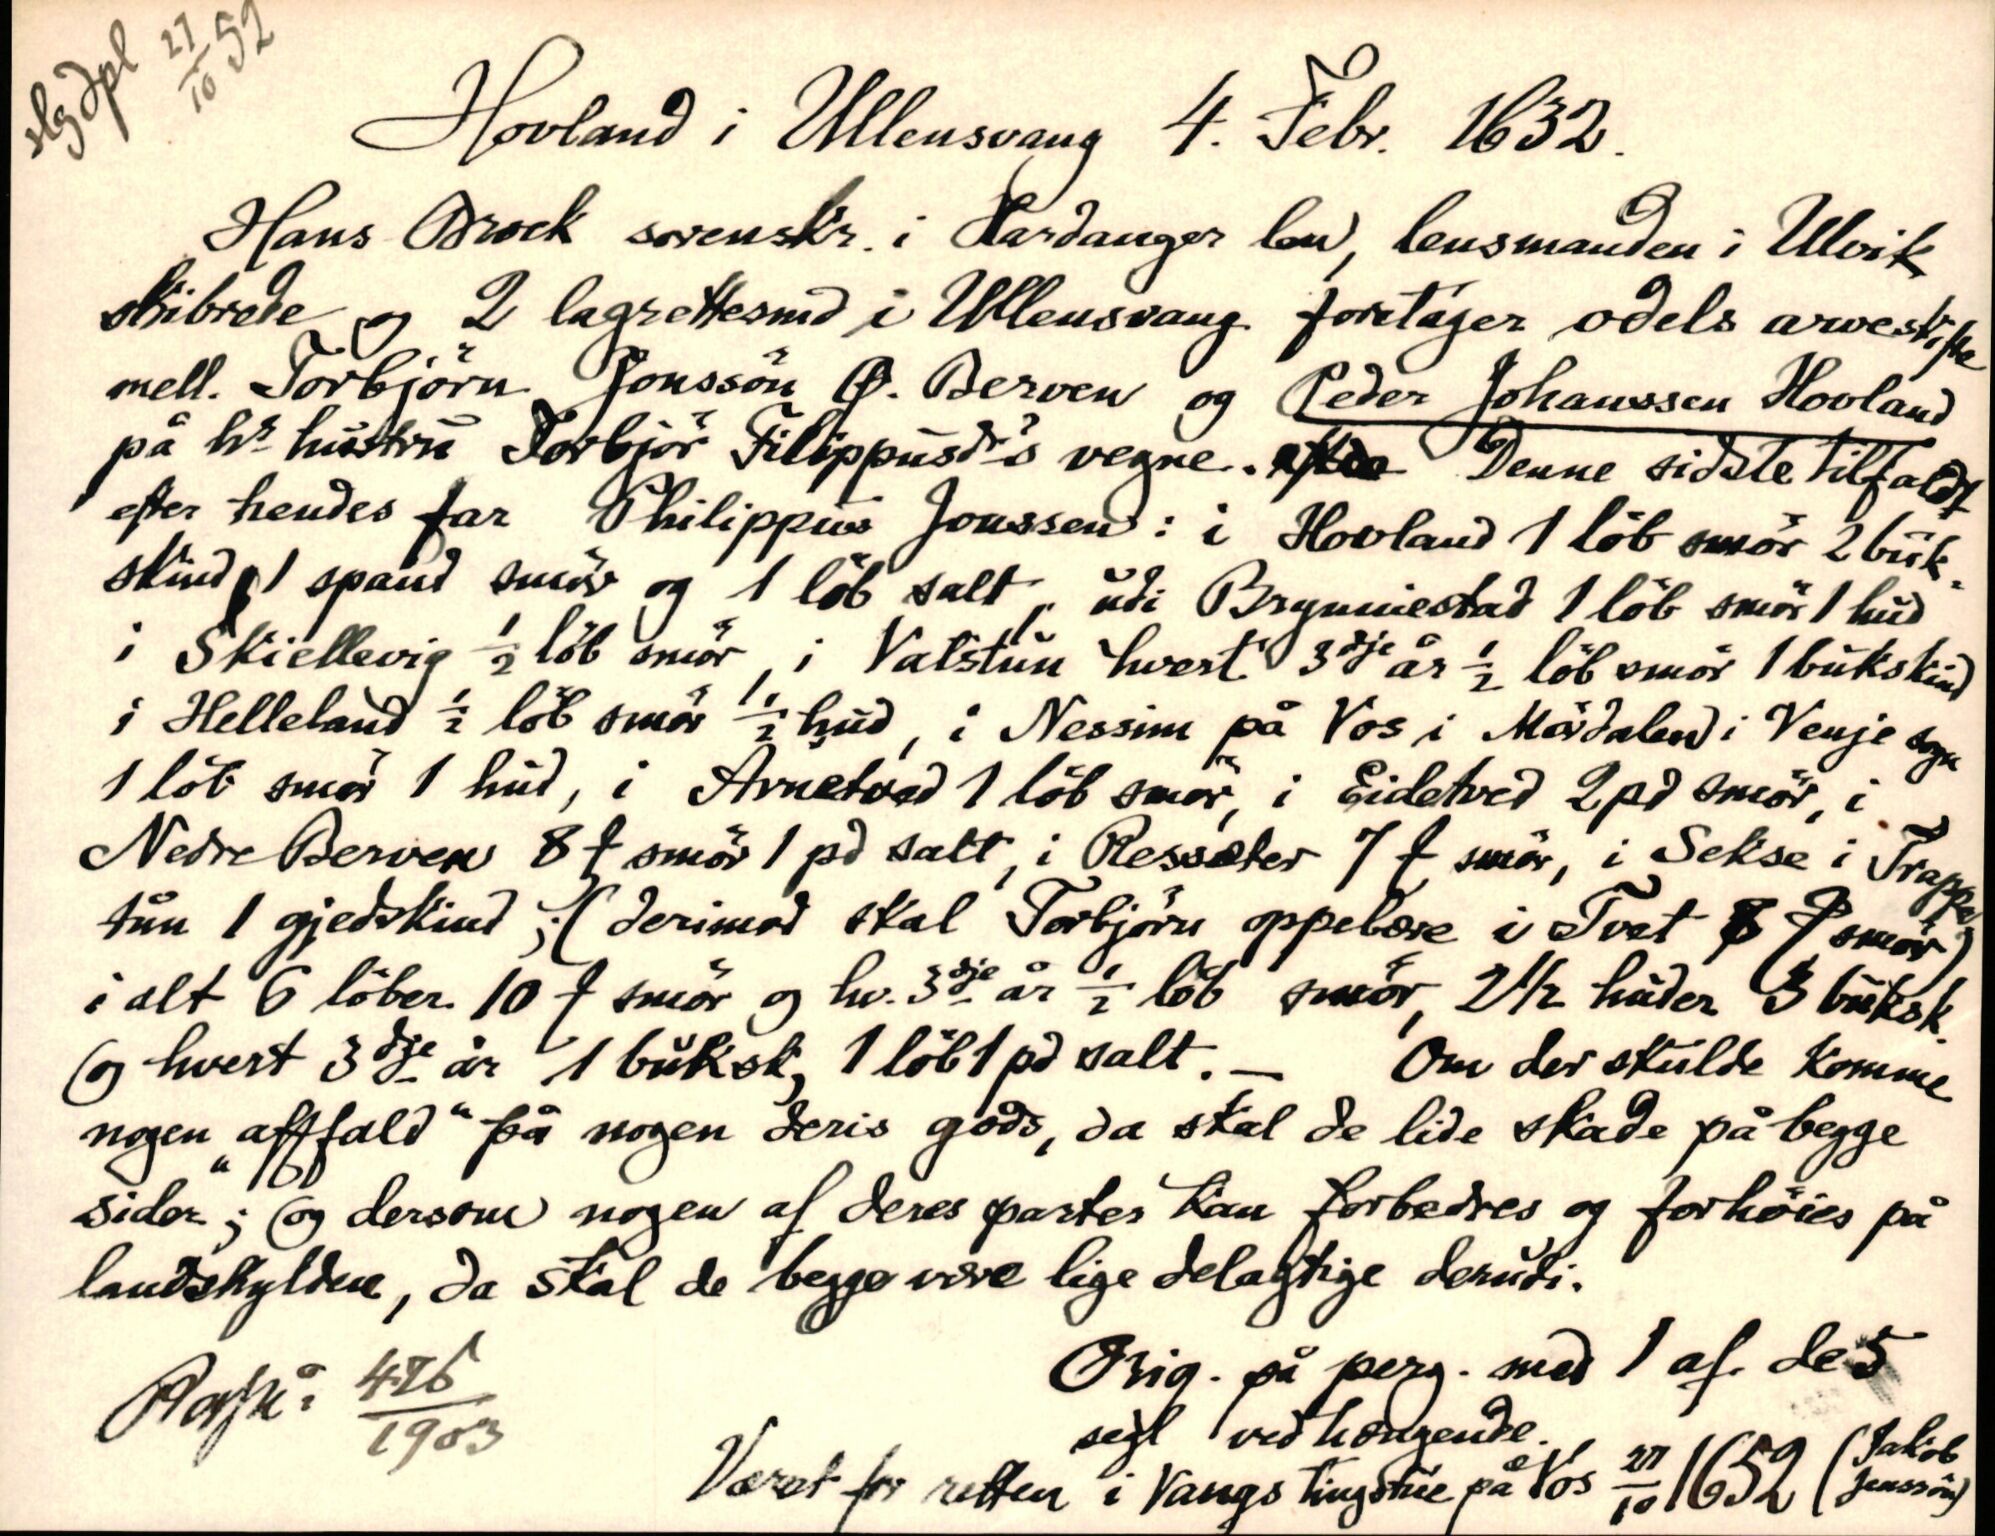 slgdpl 27/10 52
Hovland i Ullensvang 4. Febr. 1632.
Hans Brock sorenskr. i Hardanger len, lensmanden i Ulvik
skibrede og 2 lagrettesmd i Ullensvang foretager odels arveskifte
mell. Torbjörn Jonssön Ø. Berven og Peder Johanssen Hovland
på hs hustru Torbjör Filippusdr's vegne. Denne sidste tilfaldt
efter hendes far Philippus Jonssen: i Hovland 1 löb smör 2 buk-
skind, 1 spand smör og 1 löb salt, udi Brynniestad 1 löb smör 1 hud
i Skiellevig ½ löb smör, i Vatstun hvert 3dje år ½ löb smör 1 bukskind
i Helleland ½ löb smör ½ hud, i Nessim på Vos i Mördalen i Venje sogn
1 löb smör 1 hud, i Arnetved 1 löb smör, i Eidetved 2 pd smör, i
Nedre Berven 8 ₰ smör 1 pd salt, i Ressæter 7 ₰ smör, i Sekse i Trappe
tun 1 gjedskind; (derimod skal Torbjörn oppebære i Tvet 8 ₰ smör)
i alt 6 löber 10 ₰ smör og hv. 3dje år ½ löb smör, 2½ huder 3 buksk.
og hvert 3dje år 1 buksk, 1 löb 1 pd salt. — Om der skulde komme
nogen „affald“ på nogen deris gods, da skal de lide skade på begge
sider“; og dersom nogen af deres parter kan forbedres og forhöies på
landskylden, da skal de begge være lige delagtige derudi.
Orig. på perg. med 1 af de 5
segl vedhængende.
426/1903
Været for retten i Vangs tingstue på Vos 27/10 1652 (Jakob
Jenssön)